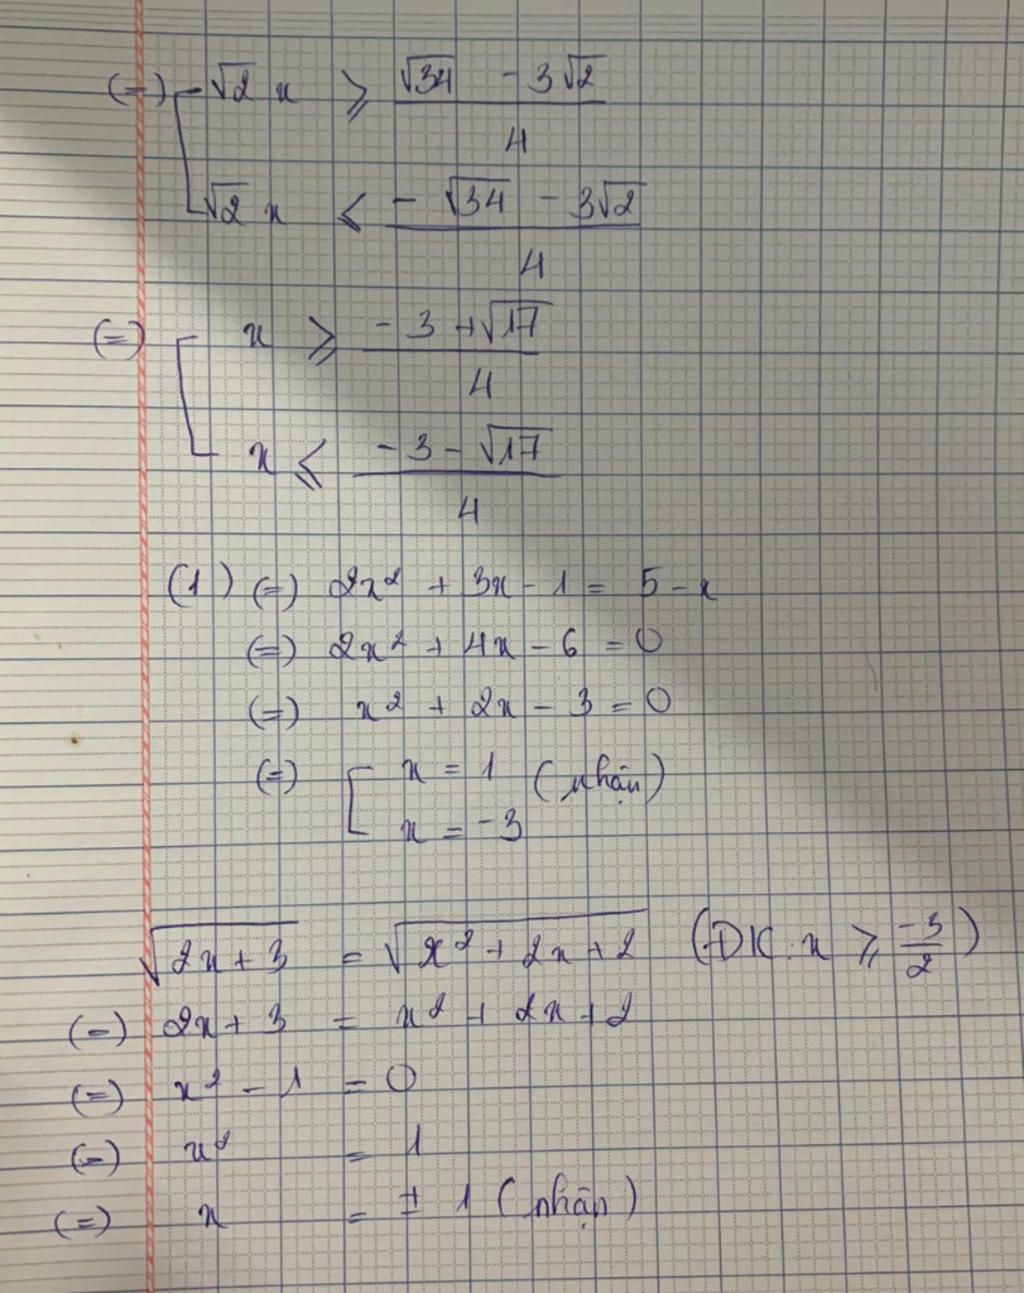 (=) [ √2 x ⩾ (√34 - 3√2)/4
√2 x ⩽ (- √34 - 3√2)/4
(=) [ x ⩾ (-3 + √17)/4
x ⩽ (-3 - √17)/4
(1) (=) 2x² + 3x - 1 = 5 - x
(=) 2x² + 4x - 6 = 0
(=) x² + 2x - 3 = 0
(=) [ x = 1 (nhận)
x = -3
√(2x + 3) = √(x² + 2x + 2) (ĐK: x ⩾ -3/2)
(=) 2x + 3 = x² + 2x + 2
(=) x² - 1 = 0
(=) x² = 1
(=) x = ± 1 (nhận)